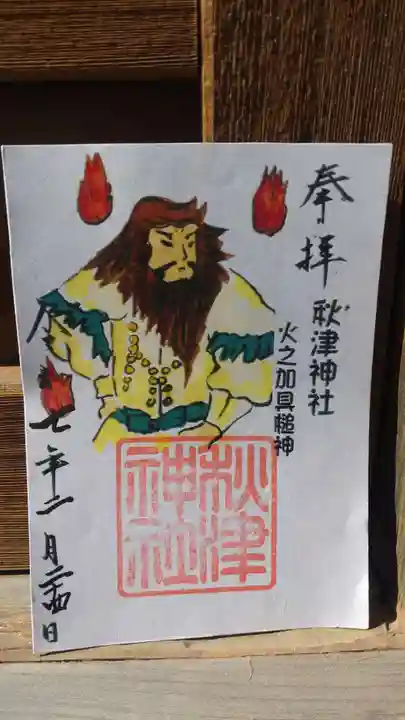 奉拝
秋津神社
火之加具槌神
秋津
神社
七年二月二十四日